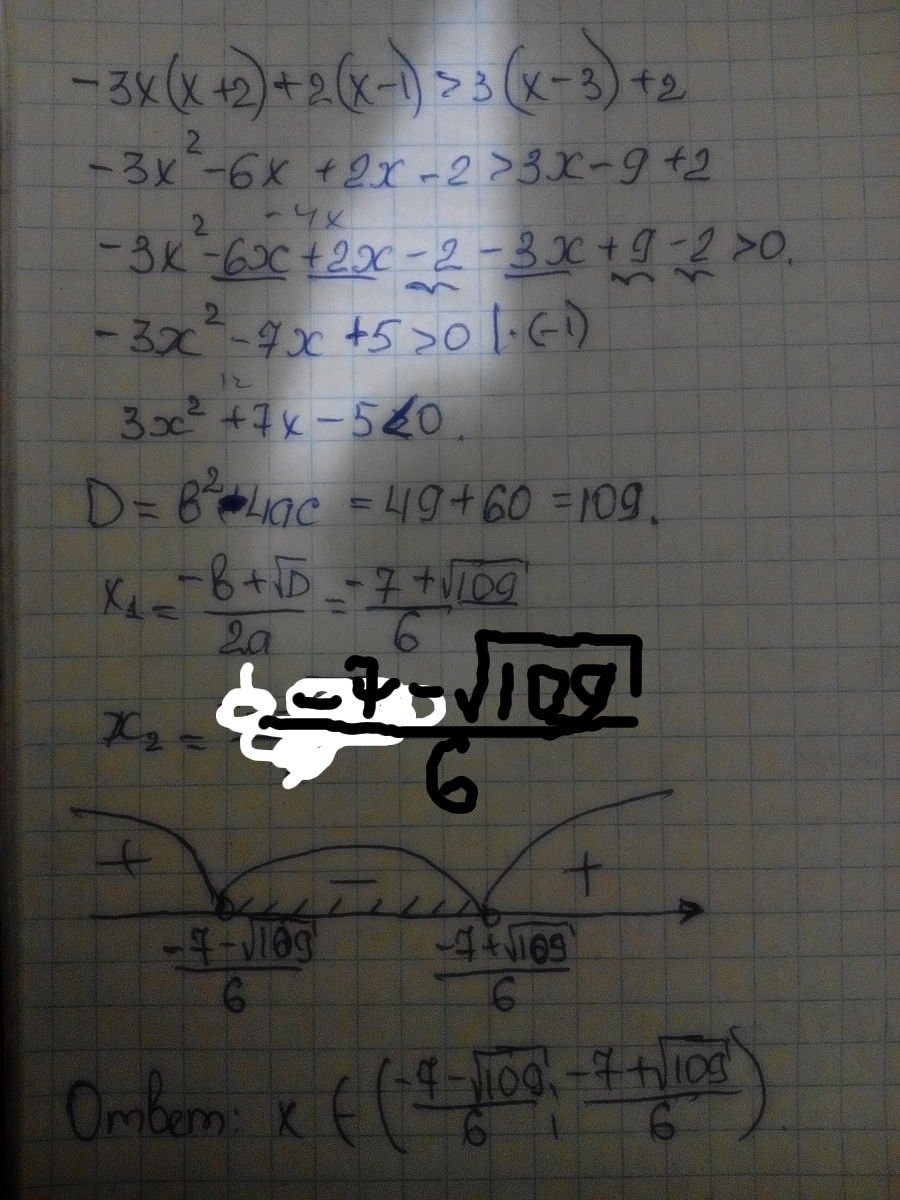 -3x(x+2)+2(x-1)>3(x-3)+2
-3x²-6x+2x-2>3x-9+2
-4x
-3x²-6x+2x-2-3x+9-2>0.
-3x²-7x+5>0 |·(-1)
12
3x²+7x-5<0.
D=b²-4ac=49+60=109.
x₁=(-b+√D)/(2a)=(-7+√109)/6
x₂=(-7-√109)/6
+ - +
(-7-√109)/6 (-7+√109)/6
Ответ: x∈((-7-√109)/6; (-7+√109)/6).